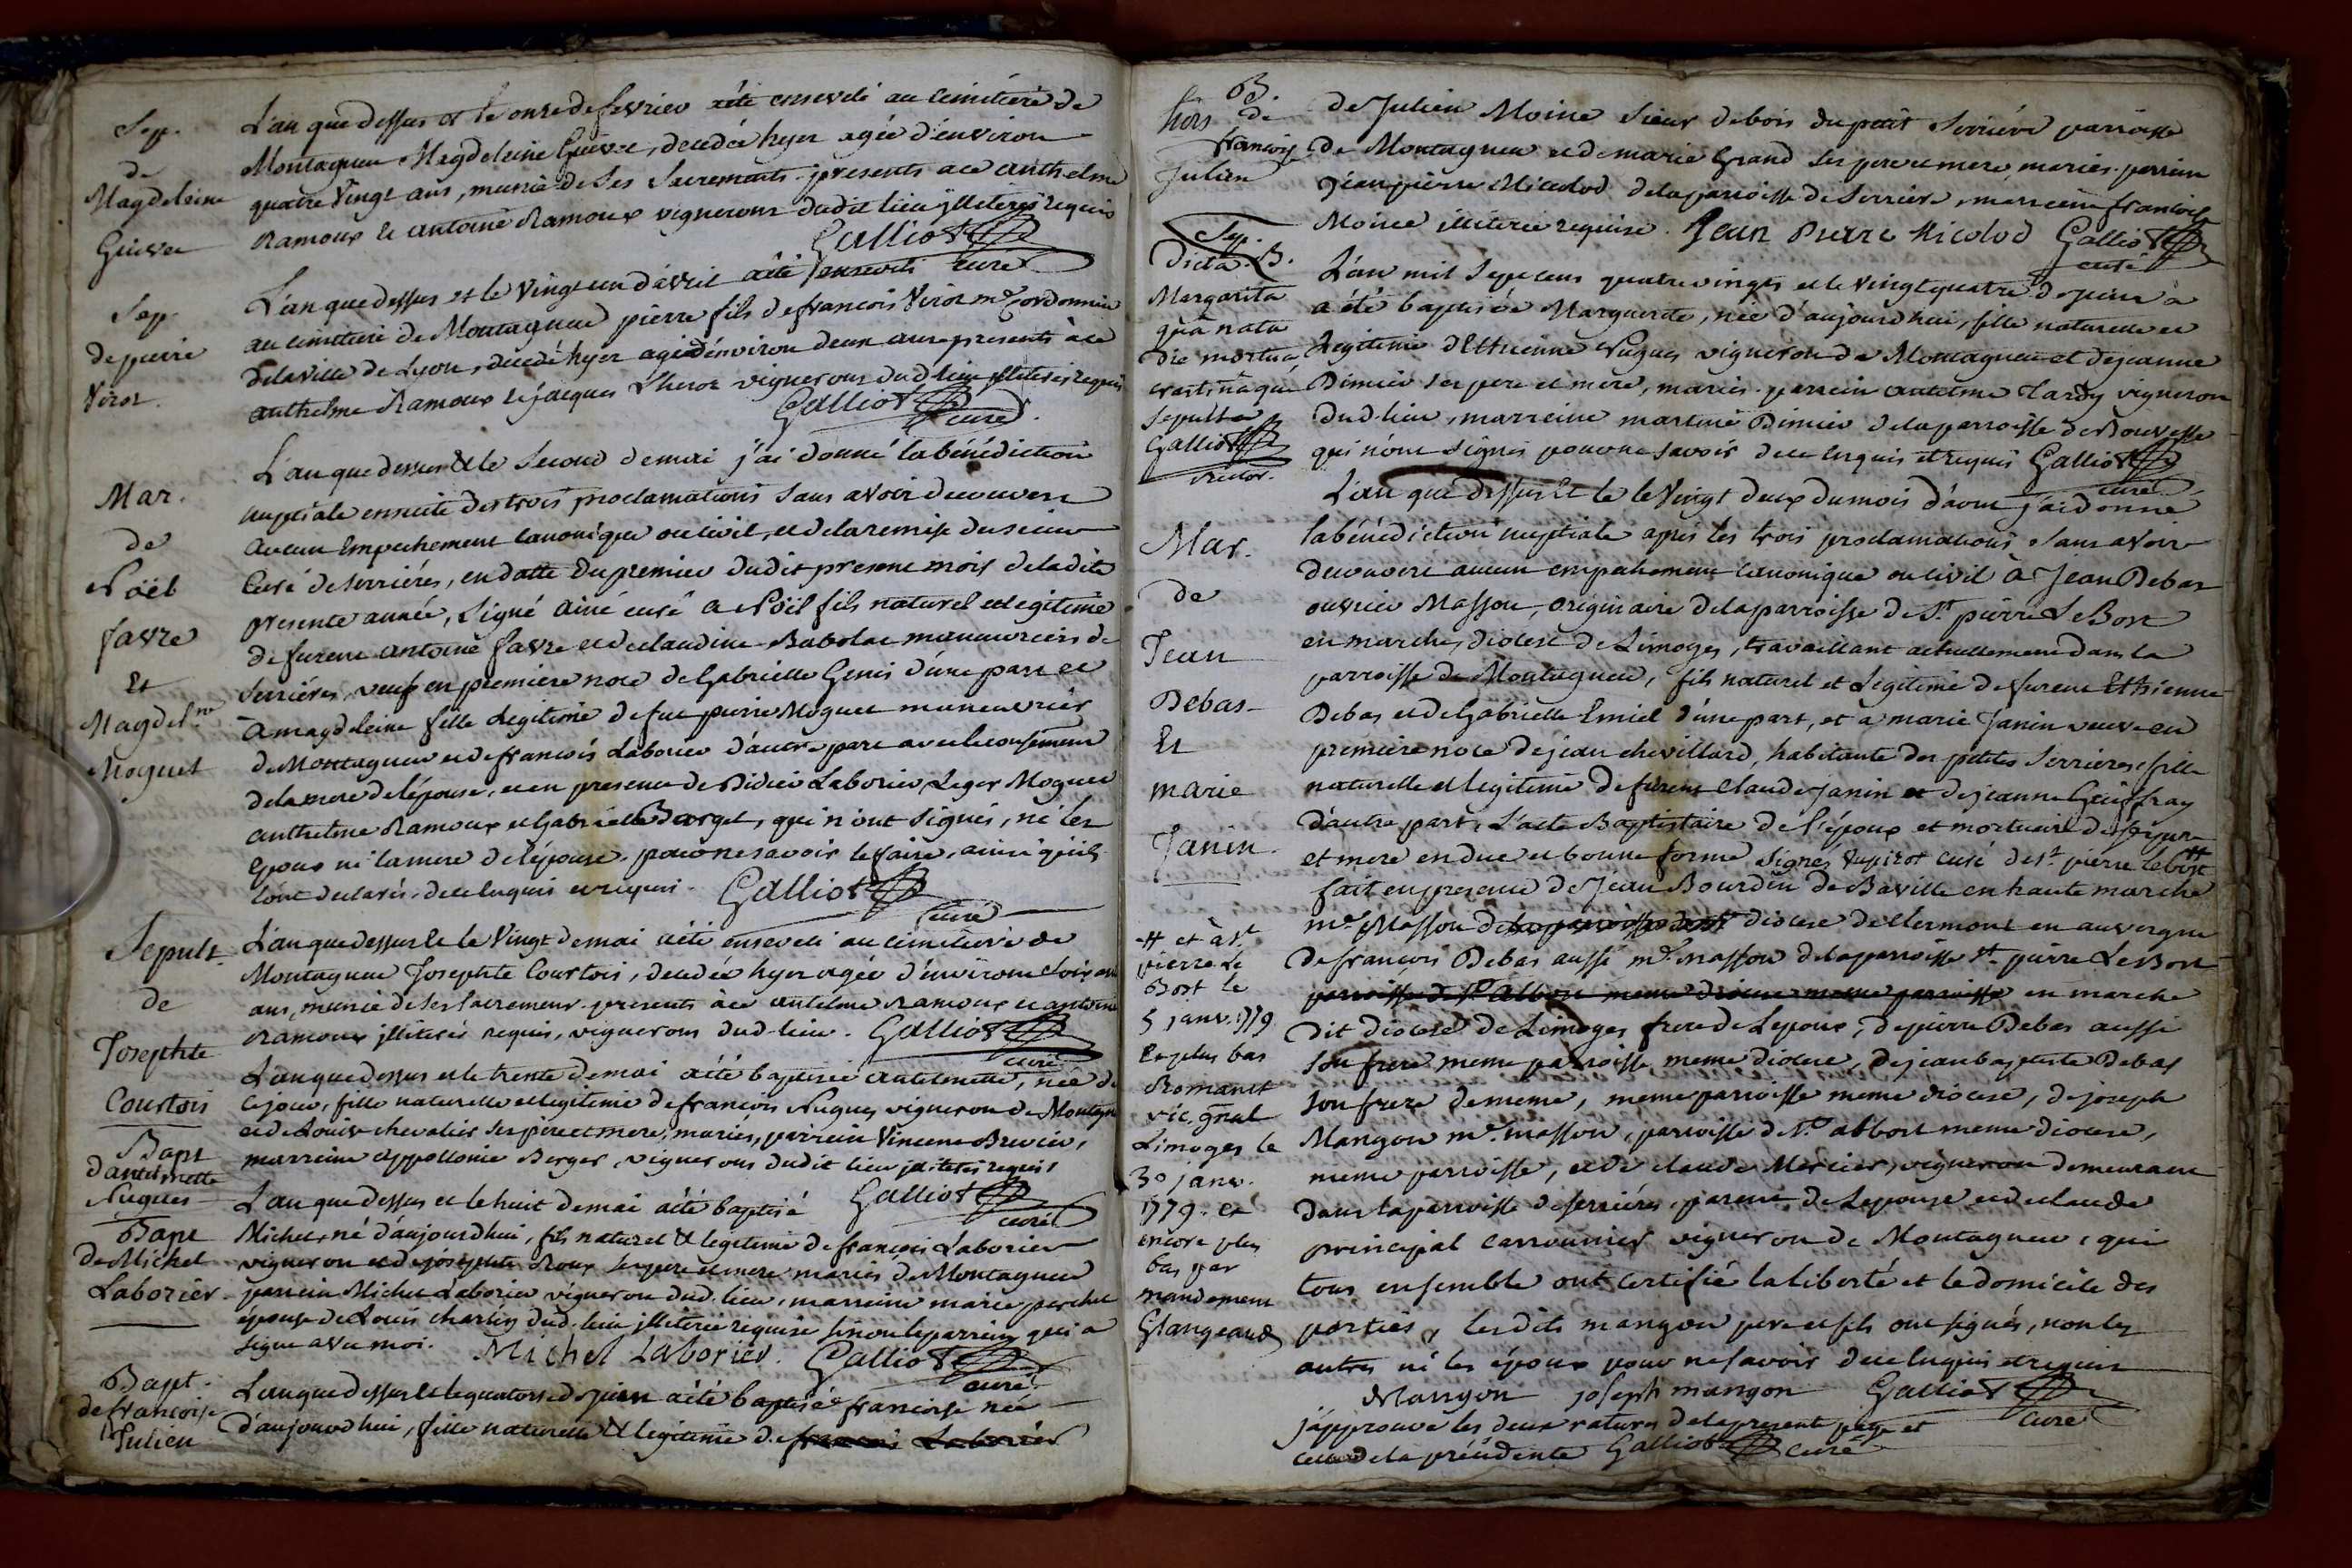 Sep.
de
Magdeleine
Guivée
L'an que dessus et le onze de fevrier a été enseveli au cimitiére de
Montagneu Magdeleine Guivée, decedée hyer agée d'environ
quatre vingt ans, munie de ses sacrements. presents a ce anthelme
Ramoux et antoine Ramoux vignerons dudit lieu illiterés requis
Galliot curé
Sep.
de pierre
Virot
L'an que dessus et le vingt un d'avril a été enseveli
au cimitiere de Montagneu pierre fils de francois Virot me cordonnier
de la ville de Lyon, decedé hyer agé d'environ deux ans presents à ce
anthelme Ramoux et jacques Lherot vignerons dud. lieu illiterés requis
Galliot curé
Mar.
de
Noël
favre
Et
Magdelne
Moguet
L'an que dessus et le second de mai j'ai donné la bénédiction
nuptiale ensuite des trois proclamations sans avoir decouvert
aucun Empechement canonique ou civil, et de la remise du sieur
Curé de serriéres, en datte du premier dudit present mois de la dite
presente année, signé ainé curé a Noël fils naturel et legitime
de furent antoine favre et de claudine Babolat manouvriers de
serriéres, veuf en premiere noce de Gabrielle Genis d'une part et
a magdeleine fille legitime de fut pierre Moguet maneuvrier
de Montagneu et de francois Laborier d'autre part avec le consentement
de la mere de l'épouse, et en presence de Didier Laborier, Leger Moguet
anthelme Ramoux et Gabrielle Barget, qui n'ont signés, ni les
Epoux ni la mere de l'épouse. pour ne savoir le faire, ainsi qu'ils
l'ont declarés, de ce enquis et requis. Galliot
curé
Sepult.
de
Josephte
Courtois
L'an que dessus et le vingt de mai a été enseveli au cimitiére de
Montagneu Josephte Courtois, decedée hyer agée d'environ soixante
ans, munie de ses sacrements. presents à ce antelme Ramoux et antoine
Ramoux illiterés requis, vignerons dud. lieu. Galliot
curé
Bapt
d'antelmette
Nugues
L'an que dessus et le trente de mai a été baptisée antelmette, née de
ce jour, fille naturelle et legitime de francois Nugues vigneron de Montagn
et de Louise chevalier ses pere et mere, mariés, parrein Vincent Brevier,
marreine appollonie Berger, vignerons dudit lieu illiterés requis,
Galliot curé
Bapt
de Michel
Laborier
L'an que dessus et le huit de mai a été baptisé
Michel, né d'aujourdhui, fils naturel et legitime de francois Laborier
vigneron et de josephte Roux ses pere et mere mariés de Montagneu
parrein Michel Laborier vigneron dud. lieu, marreine marie perchet
épouse de Louis charlin dud. lieu illiterée requise sinon le parrein qui a
signé avec moi. Michel Laborier. Galliot
curé
Bapt.
de francoise
Julien
L'an que dessus et le quatorze de juin a été baptisée francoise née
d'aujourdhui, fille naturelle et legitime de francois Laborier
B.
hors de
francoise
Julien
de Julien Moine sieur debois du petit serriére parroisse
de Montagneu et de marie Grand ses pere et mere, mariés. parrein
Jean pierre Nicolod de la parroisse de serriére, marreine francoise
Moine illiterée requise. Jean Pierre Nicolod Galliot
curé
Sep.
dicta. B.
Margarita
quâ nata
die mortua
crastina quê
sepulta
Galliot
rector.
L'an mil sept cens quatre vingts et le vingt quatre de juin a
a été baptisée Marguerite, née d'aujourdhui, fille naturelle et
Legitime d'Ethienne Nugues vigneron de Montagneu et de jeanne
Dimier ses pere et mere, mariés. parrein antelme Tardy vigneron
dud. lieu, marreine martine Dimier de la parroisse de Bouvesse
qui n'ont signés pour ne savoir de ce enquis et requis Galliot
curé
Mar.
de
Jean
Debas
Et
marie
Janin
L'an que dessus Et le le vingt deux du mois d'aout j'ai donné
la bénédiction nuptiale après les trois proclamations, sans avoir
decouvert aucun empechement canonique ou civil à Jean Debas
ouvrier Masson, originaire de la parroisse de St. pierre Le Bost
en marche, diocese de Limoges, travaillant actuellement dans la
parroisse de Montagneu, fils naturel et Legitime de furent Ethienne
Debas et de Gabrielle Emiel d'une part, et à marie Janin veuve en
premiere noce de jean chevillard, habitante des petites serrieres, fille
naturelle et legitime de furent claude janin et de jeanne Geuffray
d'autre part, L'acte Baptistaire de l'époux et mortuaire de ses pere
et mere en due et bonne forme, signés Vupirot curé de st. pierre le bost #
fait en presence de Jean Bourdin de Baville en haute marche
me Masson de la parroisse de st. diocese de clermont en auvergne
de francois Debas aussi me masson de la parroisse st. pierre Le Bost
parroisse de St. Albost meme diocese meme parroisse en marche
dit diocese de Limoges frere de Lepoux, de pierre Debas aussi
son frere meme parroisse, meme diocese, de jean baptiste Debas
son frere de meme, meme parroisse meme diocese, de joseph
Mangon me masson, parroisse de St. abbost meme diocese,
meme parroisse, et de claude Mercier, vigneron demeurant
dans la parroisse de serriéres, parent de Lepouse et de claude
principal carronnier vigneron de Montagneu, qui
tous ensemble ont certifié la liberté et le domicile des
parties, les dits mangon pere et fils ont signés, non les
autres ni les époux pour ne savoir de ce enquis et requis
Mangon joseph mangon Galliot
curé
j'approuve les deux ratures de la presente page et
celle de la précédente Galliot curé
# et à st.
pierre Le
Bost le
5 janv. 1779
Et plus bas
Romanet
vic. gñal
Limoges le
30 janv.
1779. et
encore plus
bas par
mandement
Glangeaud